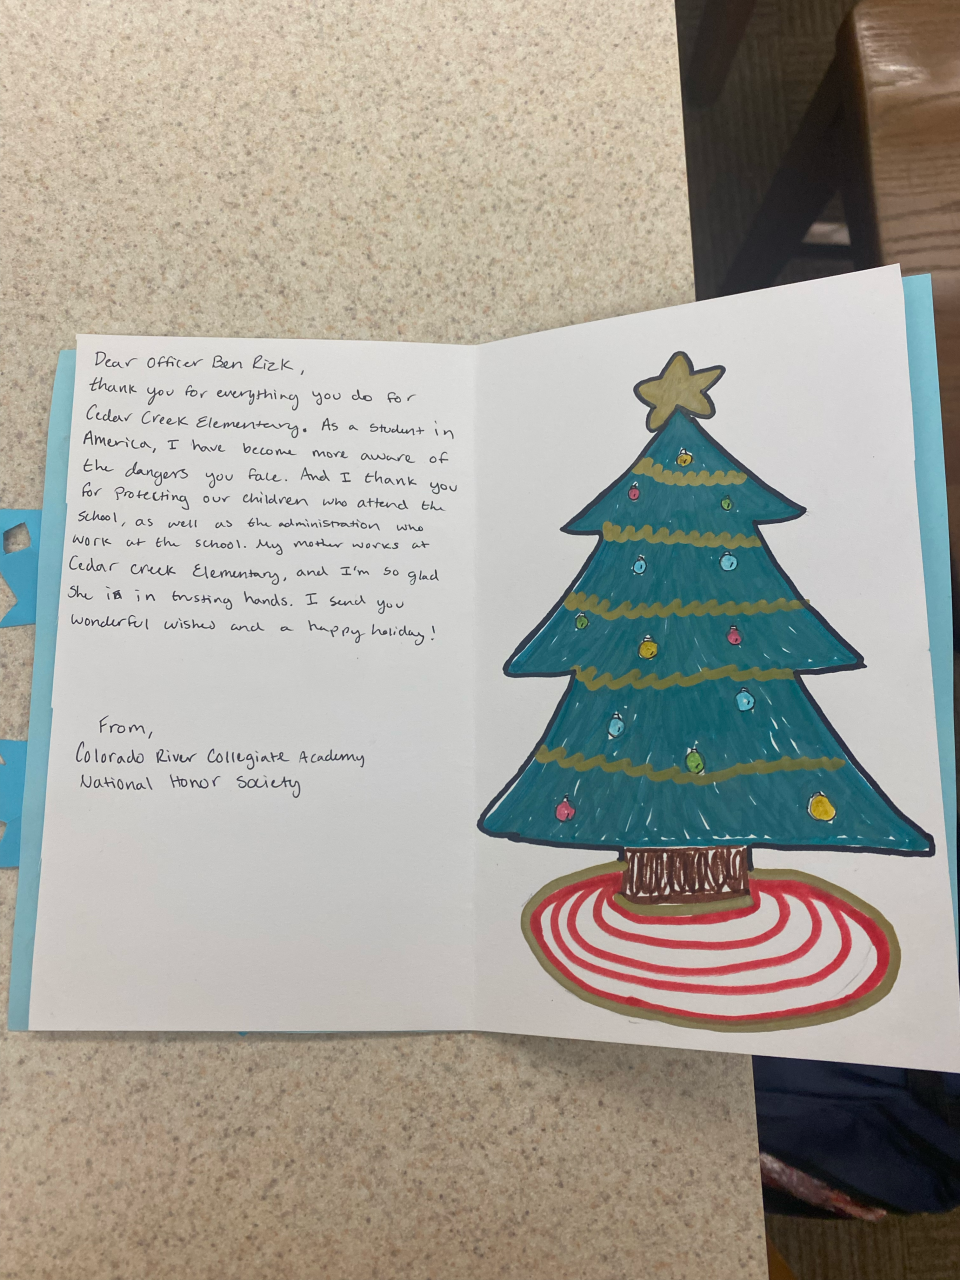 Dear Officer Ben Rizk,
thank you for everything you do for
Cedar Creek Elementary. As a student in
America, I have become more aware of
the dangers you face. And I thank you
for protecting our children who attend the
school, as well as the administration who
work at the school. My mother works at
Cedar Creek Elementary, and I'm so glad
she is in trusting hands. I send you
wonderful wishes and a happy holiday!
From,
Colorado River Collegiate Academy
National Honor Society